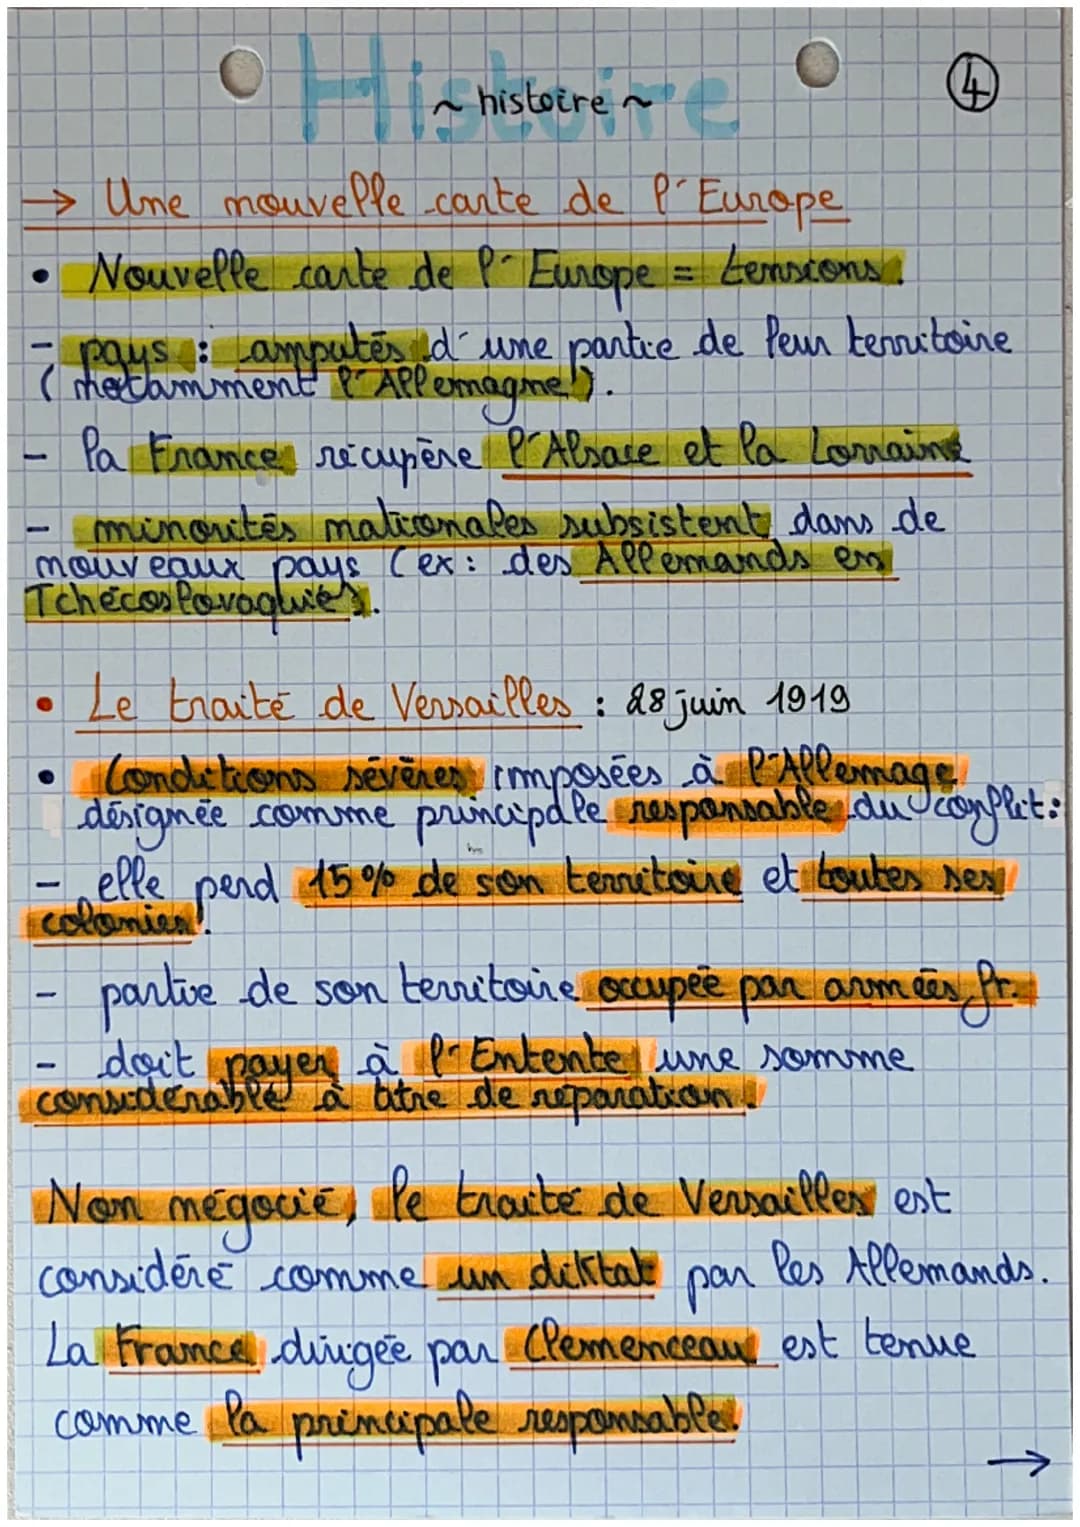 Histoire
~ histoire ~
4
→ Une nouvelle carte de l'Europe
• Nouvelle carte de l'Europe = tensions.
- pays : amputés d'une partie de leur territoire
(notamment l'Allemagne).
- la France récupère l'Alsace et la Lorraine
- minorités nationales subsistent dans de
nouveaux pays (ex: des Allemands en
Tchécoslovaquie).
• Le traité de Versailles : 28 juin 1919
• Conditions sévères imposées à l'Allemage
désignée comme principale responsable du conflit:
- elle perd 15% de son territoire et toutes ses
colonies.
- partie de son territoire occupée par armées fr.
- doit payer à l'Entente une somme
considérable à titre de réparation.
Non négocié, le traité de Versailles est
considéré comme un diktat par les Allemands.
La France dirigée par Clemenceau est tenue
comme la principale responsable.
→